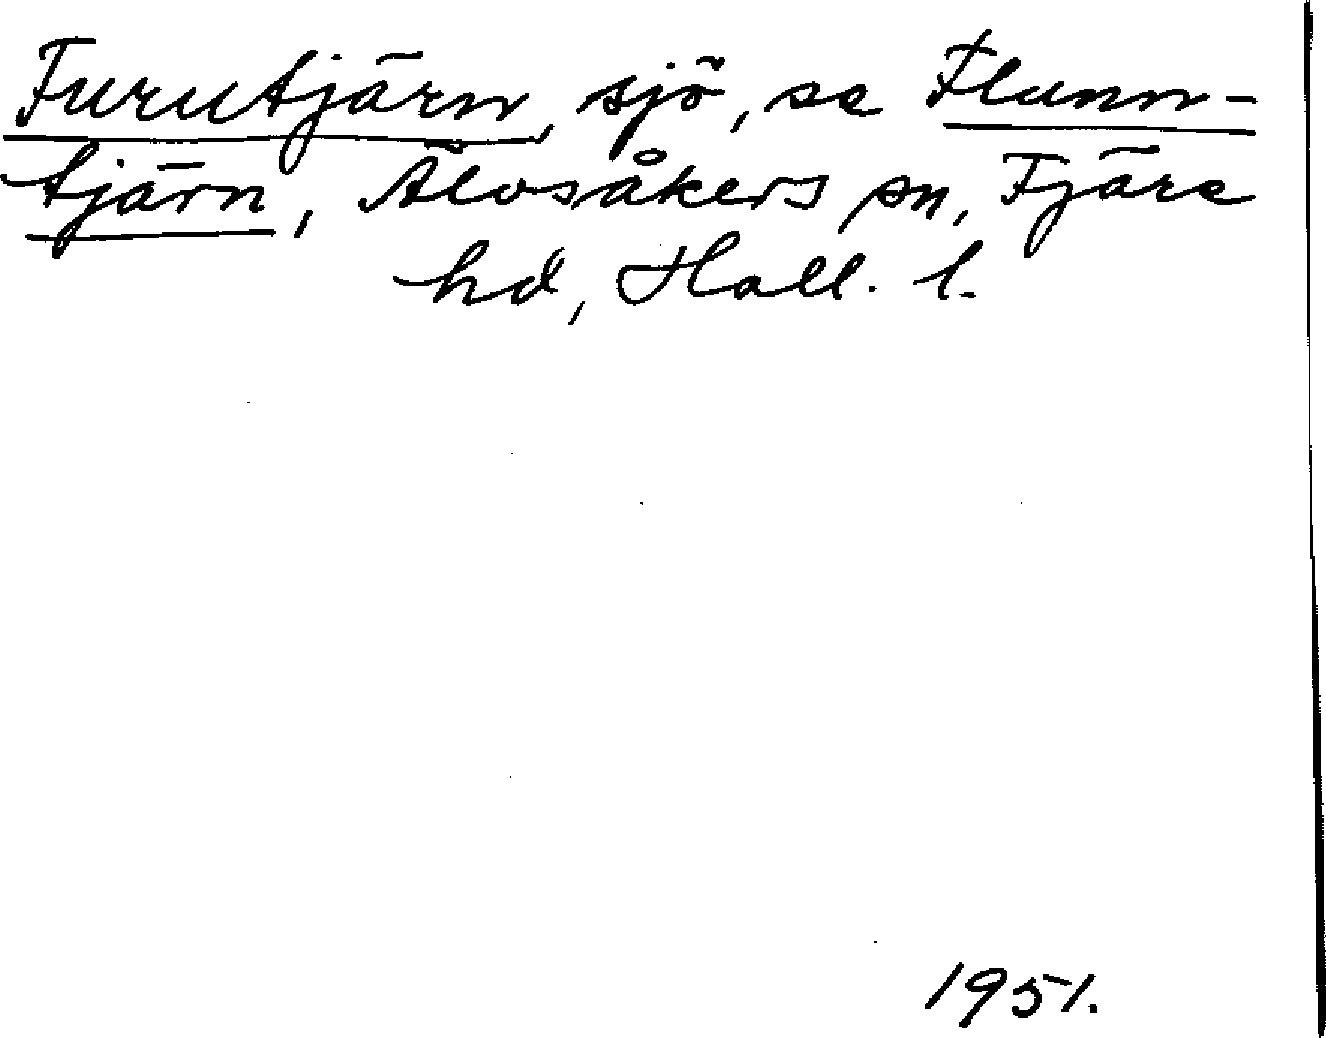 Furutjärn, sjö, se Flunn-
tjärn, Älvsåkers sn, Fjäre
hd, Hall. l.
1951.